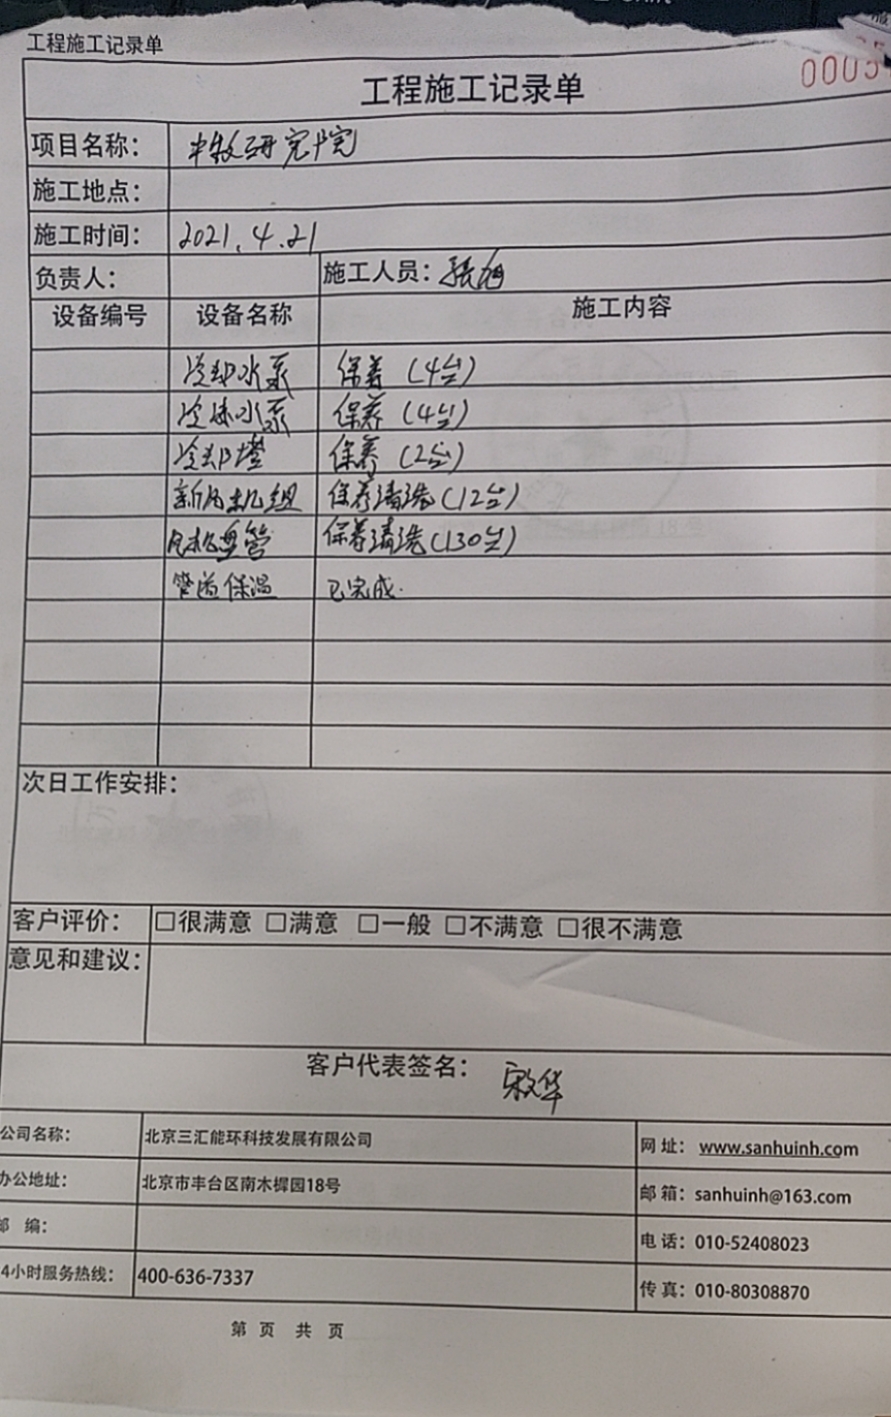 工程施工记录单
工程施工记录单
0005
项目名称： 中牧研究院
施工地点：
施工时间： 2021.4.21
负责人： 施工人员：张旭
设备编号 设备名称 施工内容
冷却水泵 保养（4台）
冷冻水泵 保养（4台）
冷却塔 保养（2台）
新风机组 保养清洗（12台）
风机盘管 保养清洗（130台）
管道保温 已完成.
次日工作安排：
客户评价： □很满意 □满意 □一般 □不满意 □很不满意
意见和建议：
客户代表签名：
公司名称： 北京三汇能环科技发展有限公司 网址： www.sanhuinh.com
办公地址： 北京市丰台区南木樨园18号 邮箱：sanhuinh@163.com
邮 编： 电话：010-52408023
4小时服务热线： 400-636-7337 传真：010-80308870
第 页 共 页